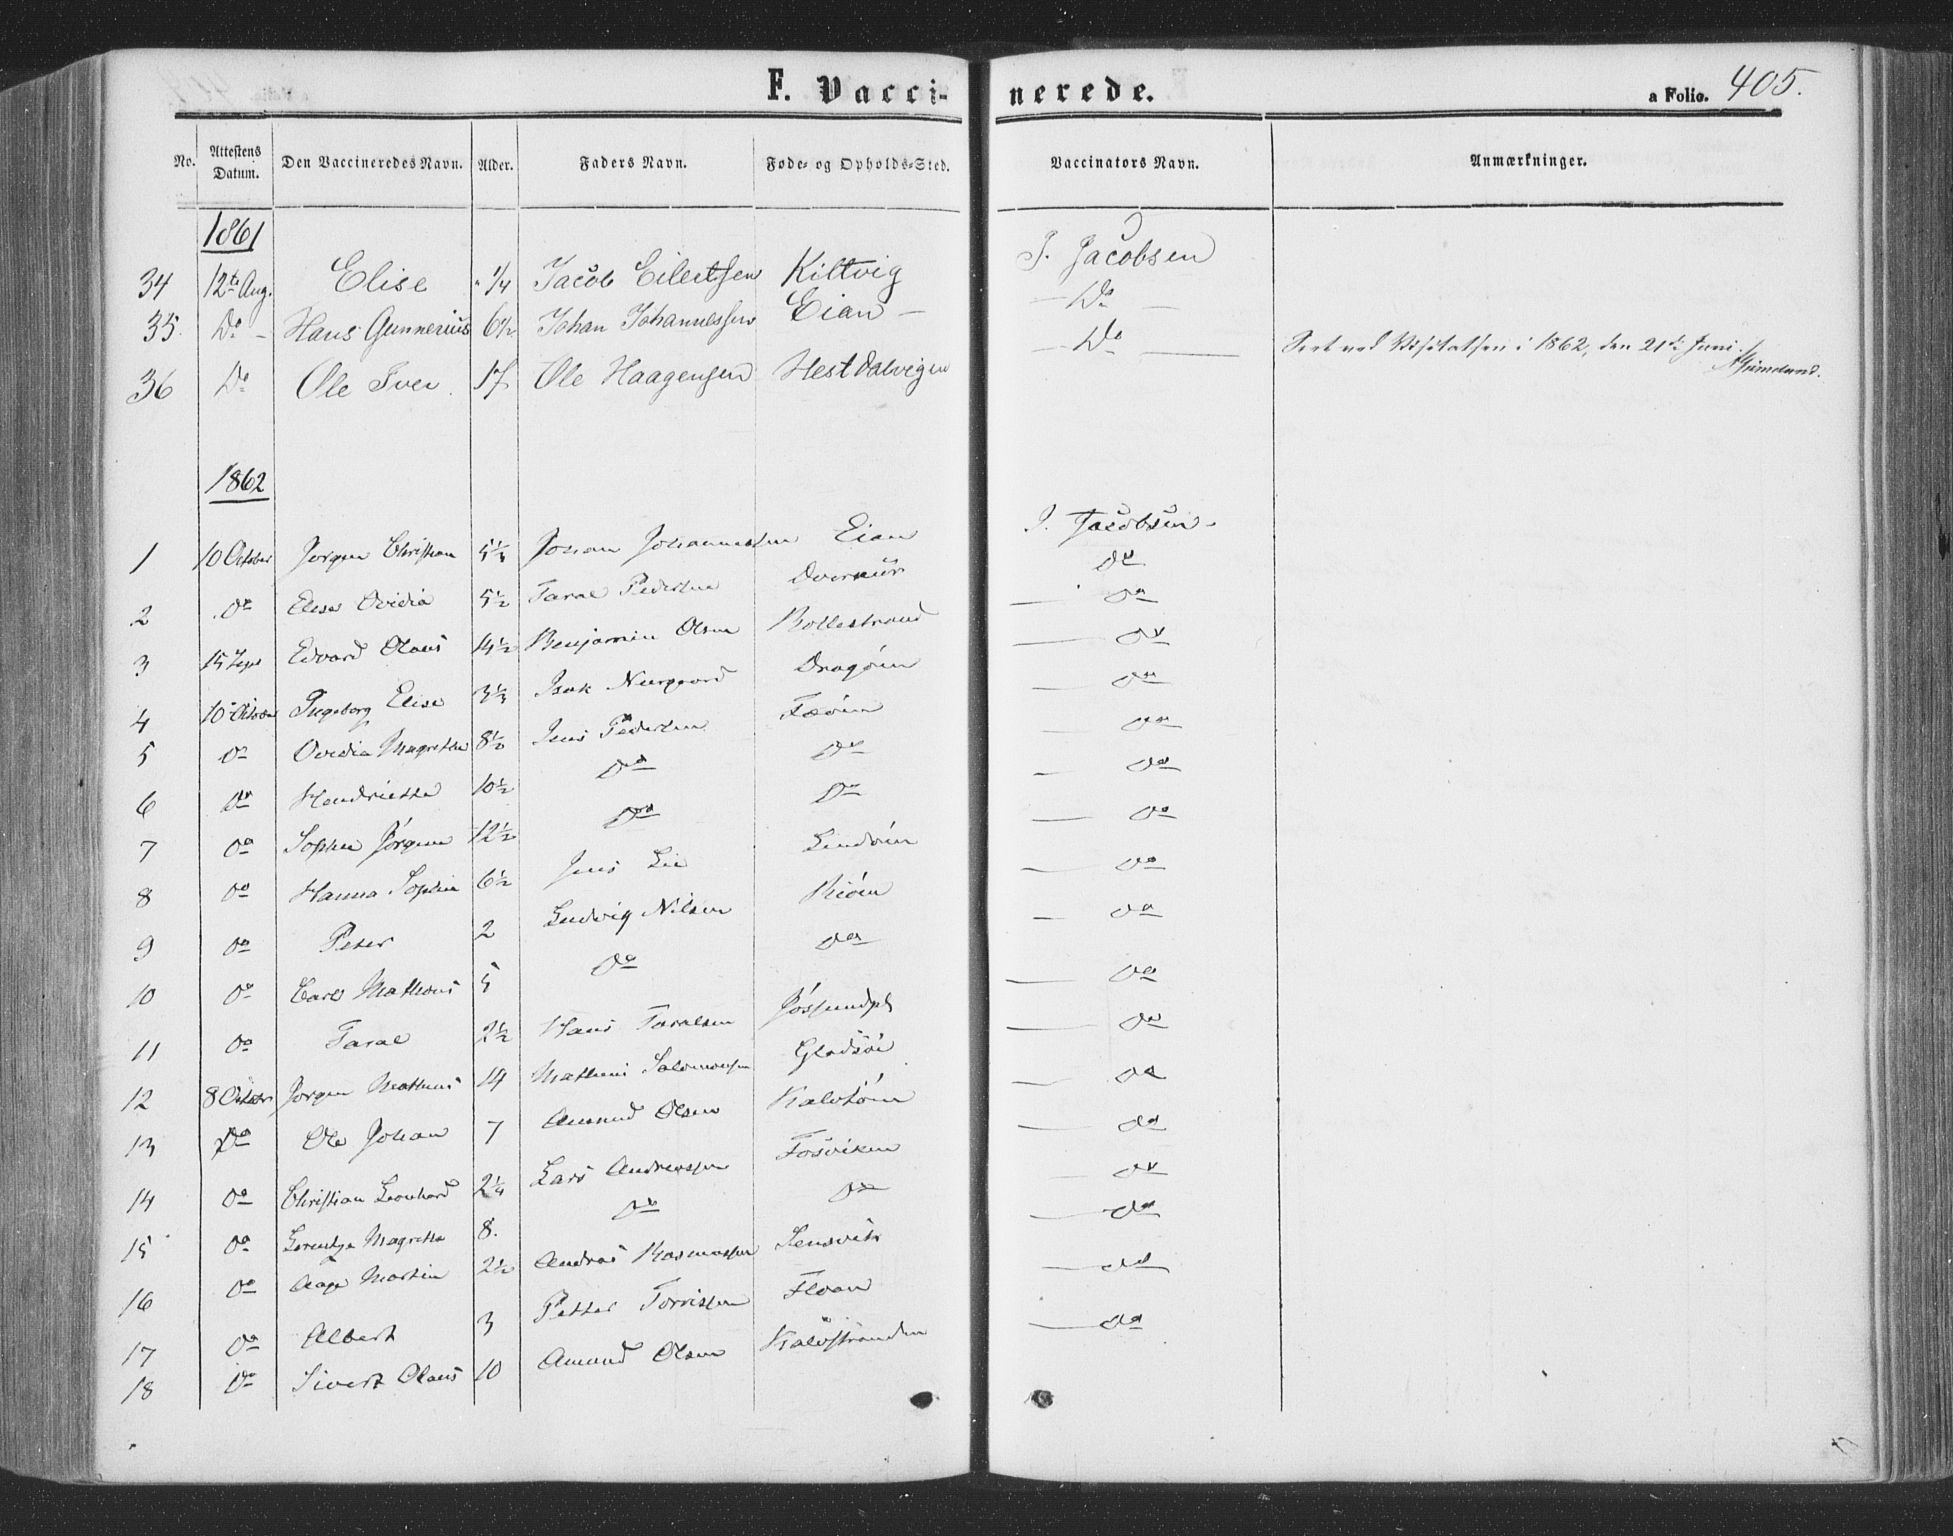 F. Vacci- nerede. a Folio. 405.
No. Attestens Datum. Den Vaccineredes Navn. Alder. Faders Navn. Føde- og Opholds-Sted. Vaccinators Navn. Anmærkninger.
1861
34 12te Aug. Elise 1/4 Jacob Eilertsen Kiltvig J. Jacobsen
35. Do - Hans Gunnerius 6 1/2 Johan Johannessen Eian - Do -
36 Do Ole Iver 17 Ole Haagensen Hestdalvigen - Do - Seet ved Visitatsen i 1862, den 21de Juni.
1862
1 10 October Jørgen Christian 5 1/3 Johan Johannessen Eian J. Jacobsen
2 do Elise Ovidia 5 1/2 Taral Pedersen do
3 15 Sept Edvard Olaus 14 1/2 Benjamin Olsen Bollestrand do
4 10 October Ingeborg Elise 3 1/3 Isak Neergaard Dragöien do
5 do Ovidia Magrethe 8 1/2 Jens Pedersen do
6 do Hendriette 10 1/2 do do do
7 do Sophie Jørgine 12 1/2 do do do
8 do Hanna Sophie 6 1/2 Jens Lie Lindöien do
9 do Peter 2 Ludvig Nilsen do
10 do Carl Mathæus 5 do do do
11 do Taral 2 1/2 Hans Taralsen do
12 8 October Jørgen Matheus 14 Matheus Salomonsen do
13 do Ole Johan 7 Amund Olsen do
14 do Christian Leonhard 2 1/4 Lars Andreassen Fosviken do
15 do Lorentze Magrethe 8. do do do
16 do Aage Martin 2 1/2 Andreas Rasmussen Lensvik do
17 do Albert 3 Petter Torrissen Floan do
18 do Sivert Olaus 10 Amund Olsen Kalvstranden do